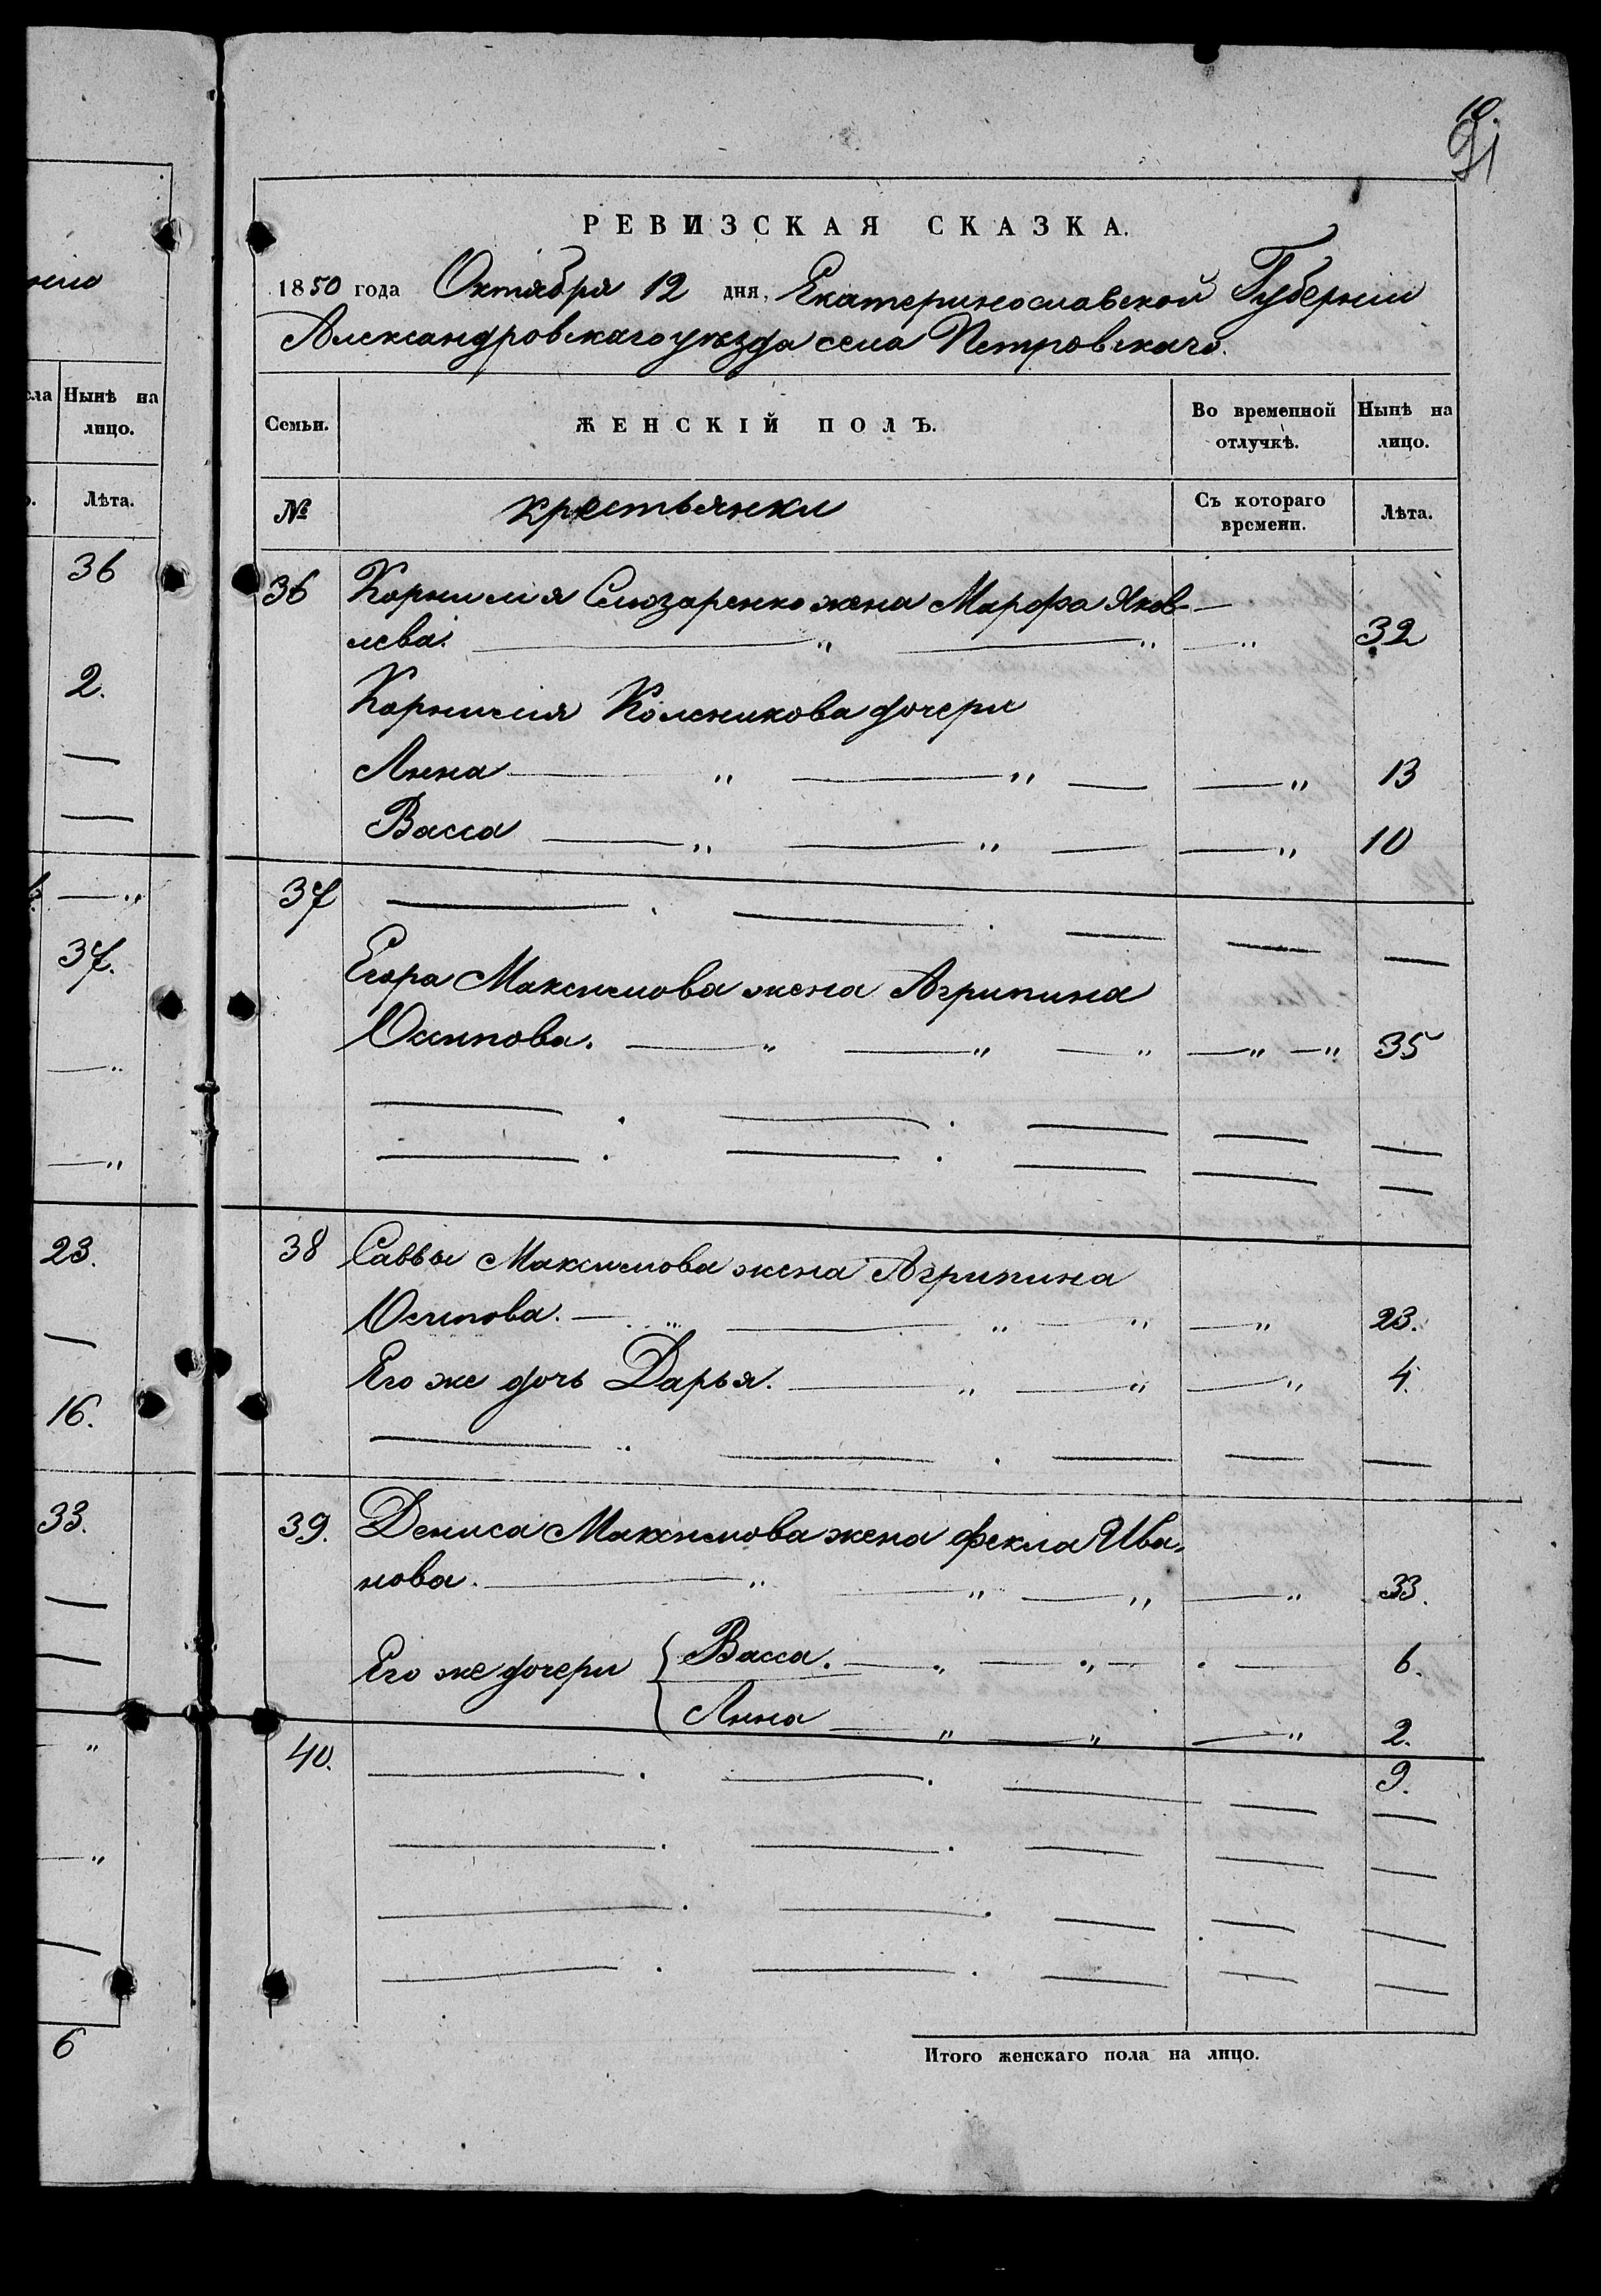 10.
91
РЕВИЗСКАЯ СКАЗКА.
1850 года Октября 12 дня, Екатеринославской Губерніи
Александровскаго уезда села Петровскаго.
Нынѣ на лицо.
Лѣта.
36
2.
37.
23.
16.
33.
6
Семьи. ЖЕНСКІЙ ПОЛЪ. Во временной отлучкѣ. Нынѣ на лицо.
№ крестьянки Съ котораго времени. Лѣта.
36 Корнилия Слюзаренко жена Марфа Яков-
лева. 32
Корнилия Коленикова дочери
Анна 13
Васса 10
37
Егора Максимова жена Агрипина
Осипова. 35
38 Саввы Максимова жена Агрипина
Осипова. 23.
Его же дочь Дарья. 4.
39. Дениса Максимова жена фекла Ива-
нова. 33.
Его же дочери { Васса. 6.
Анна 2.
40. 9.
Итого женскаго пола на лицо.